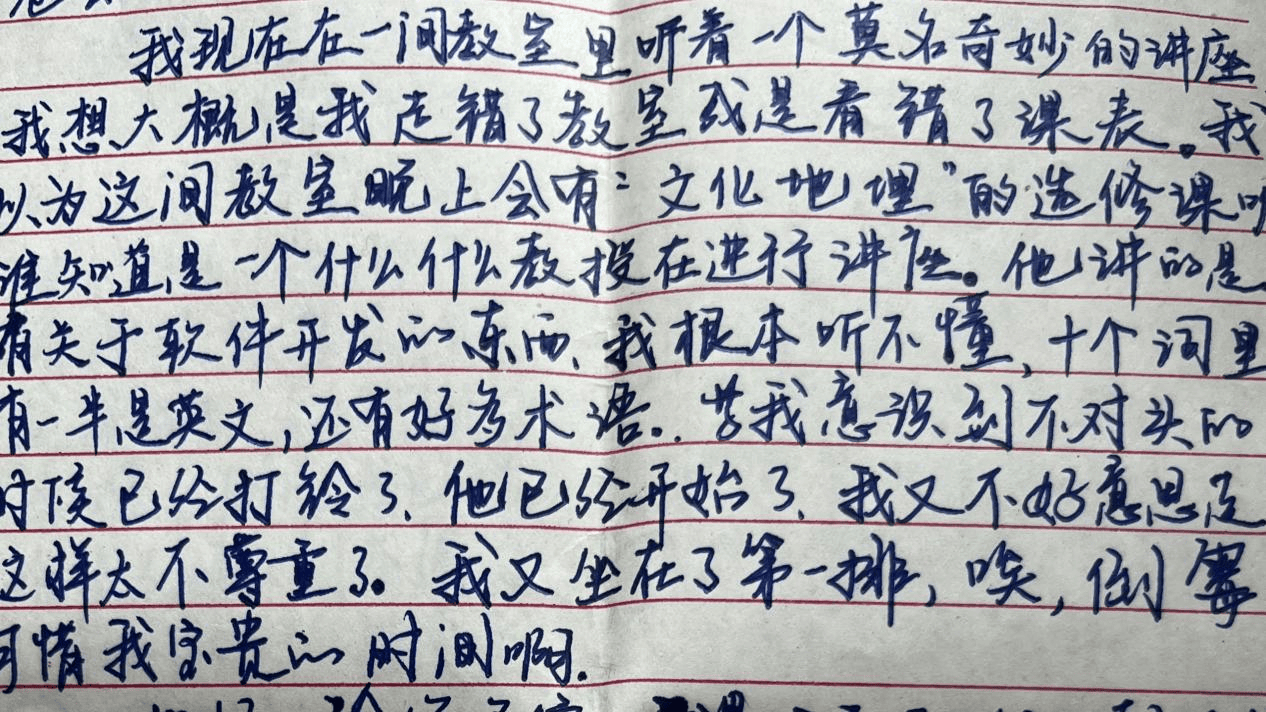 我现在在一间教室里听着一个莫名奇妙的讲座
我想大概是我走错了教室或是看错了课表。我
以为这间教室晚上会有“文化地理”的选修课
谁知道是一个什么什么教授在进行讲座。他讲的是
有关于软件开发的东西、我根本听不懂,十个词里
有一半是英文,还有好多术语..当我意识到不对头的
时候已经打铃了、他已经开始了、我又不好意思走
这样太不尊重了。我又坐在了第一排,唉,倒霉
可惜我宝贵的时间啊.